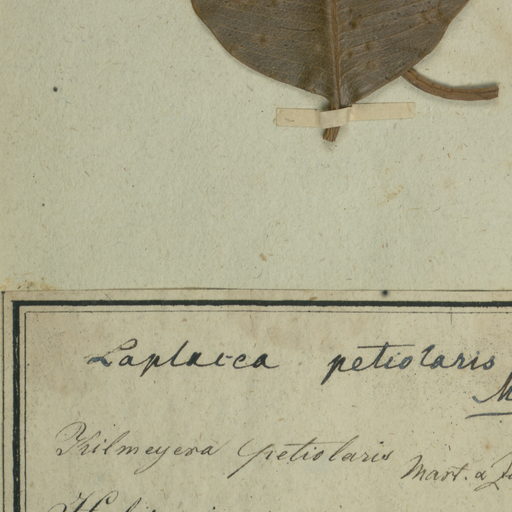 Laplacea petiolaris
M
Kilmeyera petiolaris Mart. & Zu
Habi